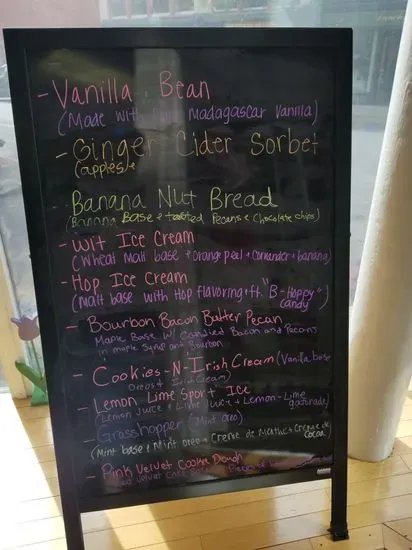 - Vanilla Bean
(Made with Pure Madagascar Vanilla)
- Ginger Cider Sorbet
(apples)
Banana Nut Bread
(Banana Base + toasted Pecans + Chocolate chips)
- Wit Ice Cream
(Wheat Malt base + orange peel + Coriander + banana)
- Hop Ice Cream
(Malt base with Hop flavoring + ft. "B-Hoppy" Candy)
- Bourbon Bacon Butter Pecan
Maple Base w/ candied Bacon and Pecans
in maple Syrup and Bourbon
- Cookies-N-Irish Cream (Vanilla base
Oreos + Irish Cream)
- Lemon Lime Sport Ice
(Lemon Juice + Lime Juice + Lemon-Lime gatorade)
- Grasshopper (Mint Oreo)
(Mint base + Mint Oreo + Creme de Menthe + Creme de Cocoa)
- Pink Velvet Cookie Dough
Velvet Cake